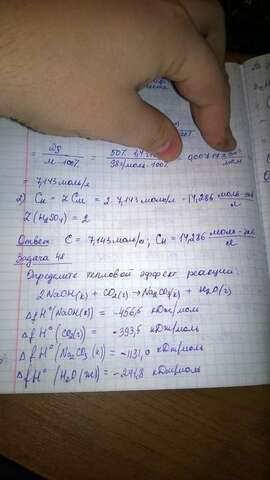 = 2g / M·100% = 50%·1,4 / 98г/моль·100%
= 7,143 моль/л
2) Cн = Z Cм = 2·7,143 моль/л = 14,286 моль-экв/л
Z(H₂SO₄) = 2
Ответ: C = 7,143 моль/л; Cн = 14,286 моль-экв/л
Задача 4
Определите тепловой эффект реакции:
2NaOH(к) + CO₂(г) → Na₂CO₃(к) + H₂O(г)
ΔfH°(NaOH(к)) = -456,5 кДж/моль
ΔfH°(CO₂(г)) = -393,5 кДж/моль
ΔfH°(Na₂CO₃(к)) = -1131,0 кДж/моль
ΔfH°(H₂O(ж)) = -241,8 кДж/моль